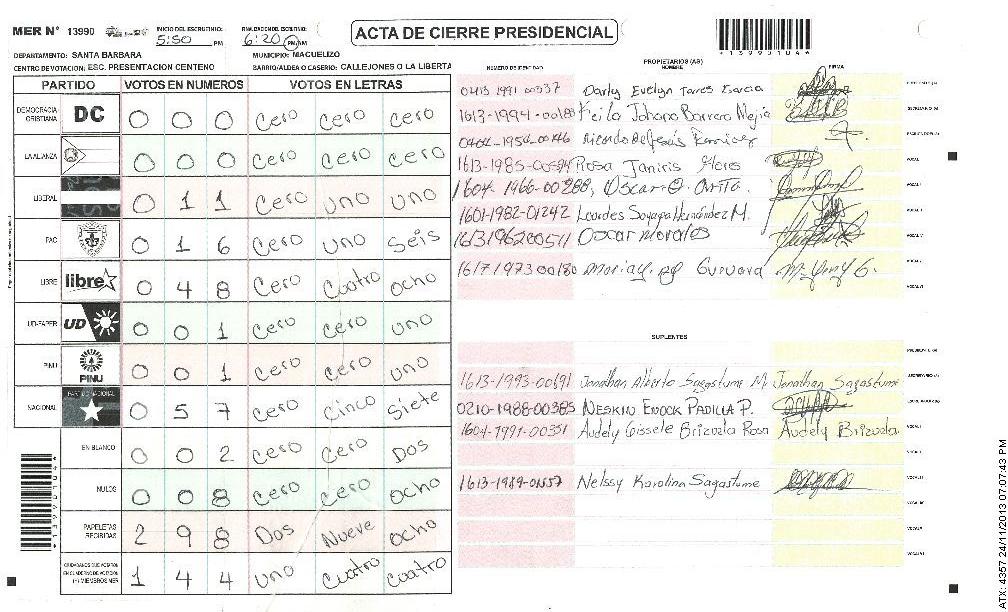 MER N° 13990
INICIO DEL ESCRUTINIO:
5:50 PM
FINALIZACION DEL ESCRUTINIO:
6:20 PM AM
ACTA DE CIERRE PRESIDENCIAL
13990104
DEPARTAMENTO: SANTA BARBARA
MUNICIPIO: MACUELIZO
CENTRO DE VOTACION: ESC. PRESENTACION CENTENO
BARRIO/ALDEA O CASERIO: CALLEJONES O LA LIBERTA
PARTIDO VOTOS EN NUMEROS VOTOS EN LETRAS
DEMOCRACIA CRISTIANA DC 0 0 0 Cero Cero Cero
LA ALIANZA 0 0 0 Cero Cero Cero
LIBERAL 0 1 1 Cero Uno Uno
PAC 0 1 6 Cero Uno Seis
LIBRE libre 0 4 8 Cero Cuatro Ocho
UD-FAPER UD 0 0 1 Cero Cero Uno
PINU PINU 0 0 1 Cero Cero Uno
NACIONAL PARTIDO NACIONAL 0 5 7 Cero Cinco Siete
EN BLANCO 0 0 2 Cero Cero Dos
NULOS 0 0 8 Cero Cero Ocho
PAPELETAS RECIBIDAS 2 9 8 Dos Nueve Ocho
CIUDADANOS QUE VOTARON EN CUADERNO DE VOTACION (+) MIEMBROS MER 1 4 4 Uno Cuatro Cuatro
PROPIETARIOS (AS)
NUMERO DE IDENTIDAD NOMBRE FIRMA
0413 1991 00337 Darly Evelyn Torres Garcia
1613-1994-00180 Keila Johana Barrera Mejia
Ricardo de Jesús Ramirez
1613-1985-00594 Rosa Janiris Flores
1604-1966-00288, Oscar O.
1601-1982-01242 Lourdes Sayapa Hernández M.
1613196200511 Oscar Morales
1617197300180 Guevara
SUPLENTES
1613-1993-00691 Jonathan Alberto Sagastume M. Jonathan Sagastume
0210-1988-00385 NESKIN ENOCK PADILLA P.
1604-1991-00351 Audely Gissele Brizuela Rosa Audely Brizuela
1613-1989-01557 Nelssy Karolina Sagastume
13990104
ATX: 4357 24/11/2013 07:07:43 PM